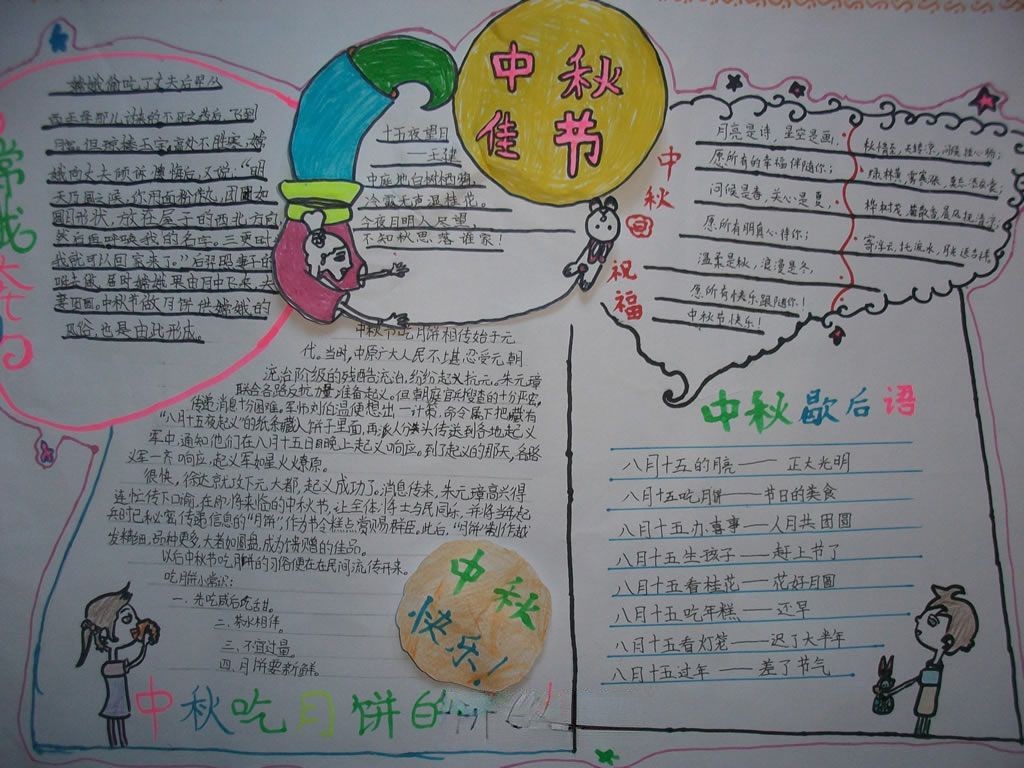 中秋
佳节
常娥奔
嫦娥偷吃了丈夫后羿从
西王母那儿讨来的不死之药后,飞到
月宫。但琼楼玉宇,高处不胜寒,嫦
娥向丈夫倾诉懊悔后,又说:“明
天乃月圆之候,你用面粉作丸,团团如
圆月形状,放在屋子的西北方向,
然后再呼唤我的名字。三更时
我就可以回家来了。”后羿照妻子的
吩去做,届时嫦娥果由月中飞来,夫
妻团圆。中秋节做月饼供嫦娥的
风俗,也是由此形成。
十五夜望月
——王建
中庭地白树栖鸦,
冷露无声湿桂花。
今夜月明人尽望,
不知秋思落谁家!
中秋
祝福
月亮是诗,星空是画,
愿所有的幸福伴随你;
问候是春,关心是夏,
愿所有朋真心待你;
温柔是秋,浪漫是冬,
愿所有快乐跟随你!
中秋节快乐!
中秋节吃月饼相传始于元
代。当时,中原广大人民不上堪忍受元朝
统治阶级的残酷统治,纷纷起义抗元。朱元璋
联合各路反抗力量准备起义。但朝庭官兵搜查的十分严密,
传递消息十分困难。军师刘伯温便想出一计策,命令属下把藏有
“八月十五夜起义”的纸条藏入饼子里面,再派人分头传送到各地起义
军中,通知他们在八月十五日晚上起义响应。到了起义的那天,各路
义军一齐响应,起义军如星火燎原。
很快,徐达就攻下元大都,起义成功了。消息传来,朱元璋高兴得
连忙传下口谕,在即将来临的中秋节,让全体将士与民同乐,并将当年起
兵时已秘密传递信息的“月饼”,作为节令糕点赏赐群臣。此后,“月饼”制作越
发精细,品种更多,大者如圆盘,成为馈赠的佳品。
以后中秋节吃月饼的习俗便在在民间流传开来。
吃月饼小常识:
一、先吃咸后吃甜。
二、茶水相伴。
三、不宜过量。
四、月饼要新鲜。
中秋
快乐!
中秋吃月饼的
中秋歇后语
八月十五的月亮——正大光明
八月十五吃月饼——节日的美食
八月十五办喜事——人月共团圆
八月十五生孩子——赶上节了
八月十五看桂花——花好月圆
八月十五吃年糕——还早
八月十五看灯笼——迟了大半年
八月十五过年——差了节气